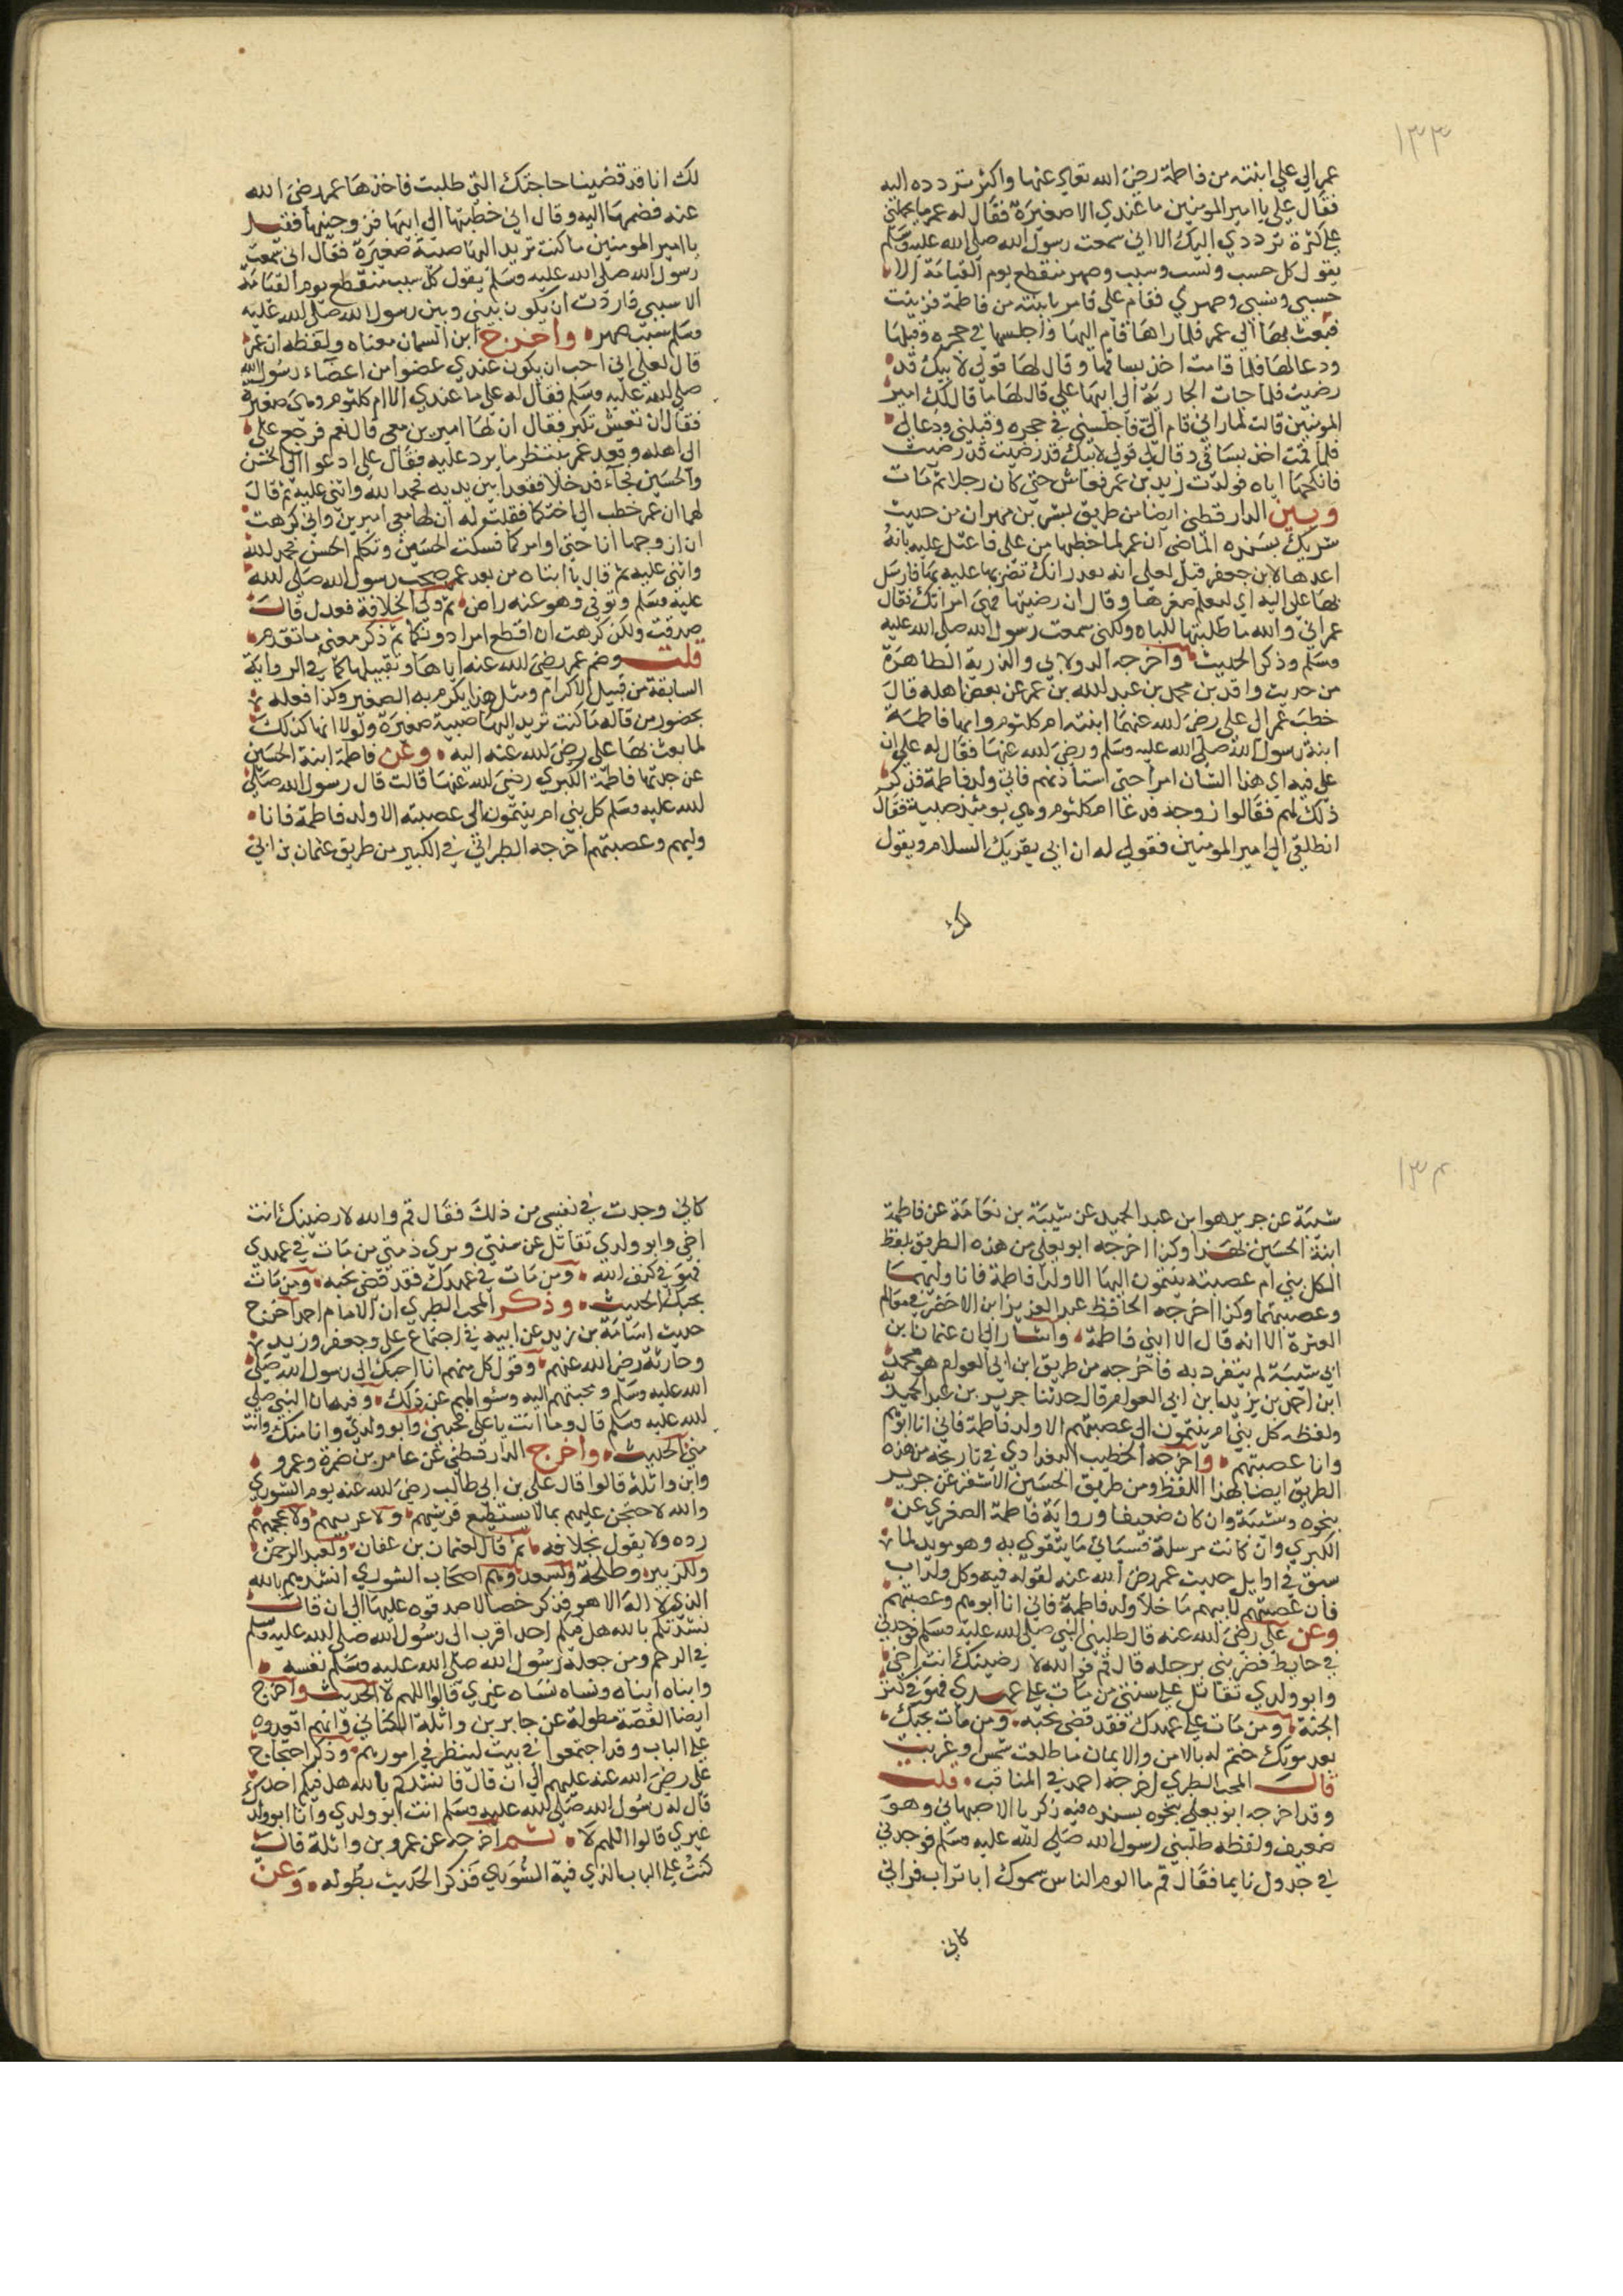 ١٣٣
عمر الي علي ابنته من فاطمة رضي الله تعالى عنها واكثر تردده اليه
فقال علي يا امير المومنين ما عندي الا صغيرة فقال له عمر ما يحملني
علي كثرة ترددي اليك الا اني سمعت رسول الله صلي الله عليه وسلم
يقول كل حسب ونسب وسبب وصهر منقطع يوم القيامة الا
حسبي ونسبي وصهري فقام علي فامر بابنته من فاطمة فزينت
فبعث بها الي عمر فلما راها قام اليها واجلسها في حجره وقبلها
ودعا لها فلما قامت اخذ بساقها وقال لها قولي لابيك قد
رضيت فلما جات الجارية الي ابيها علي قال لها ما قال لك امير
المومنين قالت لما راني قام الي فاجلسني في حجره وقبلني ودعا لي
فلما قمت اخذ بساقي وقال لي قولي لابيك قد رضيت قد رضيت
فانكحها اياه فولدت زيد بن عمر فعاش حتي كان رجلا ثم مات
وبين الدارقطني ايضا من طريق بشر بن مهران من حديث
شريك بسنده الماضي ان عمر لما خطبها من علي فاعتل عليه بانه
اعدها لابن جعفر قيل لعلي انه بعد رانك تضن بها عليه ثم ارسل
بها علي اليه اي ليعلم صغرها وقال ان رضيتها فهي امراتك فقال
عمر اني والله ما طلبتها للباه ولكني سمعت رسول الله صلي الله عليه
وسلم وذكر الحديث واخرجه الدولابي والذرية الطاهرة
من حديث واقد بن محمد بن عبد الله بن عمر عن بعض اهله قال
خطب عمر الي علي رضي الله عنهما ابنته ام كلثوم وامها فاطمة
ابنة رسول الله صلي الله عليه وسلم ورضي الله عنها فقال له علي ان
علي فيه اي هذا الشان امرا حتي استاذنهم فاتي ولد فاطمة فذكر
ذلك لهم فقالوا زوجه فدعا ام كلثوم وهي يومئذ صبية فقال
انطلقي الي امير المومنين فقولي له ان ابي يقريك السلام ويقول
لك
لك انا قد قضينا حاجتك التي طلبت فاخذها عمر رضي الله
عنه فضمها اليه وقال اني خطبتها الي ابيها فزوجنيها فقيل
يا امير المومنين ما كنت تريد اليها صبية صغيرة فقال اني سمعت
رسول الله صلي الله عليه وسلم يقول كل سبب منقطع يوم القيامة
الا سببي فاردت ان يكون بيني وبين رسول الله صلي الله عليه
وسلم سبب صهر واخرج ابن السمان معناه ولفظه ان عمر
قال لعلي اني احب ان يكون عندي عضوا من اعضاء رسول الله
صلي الله عليه وسلم فقال له علي ما عندي الا ام كلثوم وهي صغيرة
فقال ان تعش تكبر فقال ان لها اميرين معي قال نعم فرجع علي
الي اهله وقعد عمر ينتظر ما يرد عليه فقال علي ادعوا الي الحسن
والحسين فجاء فدخلا فقعدا بين يديه فحمد الله واثني عليه ثم قال
لهما ان عمر خطب الي اختكما فقلت له ان لها معي اميرين واني كرهت
ان ازوجها انا حتي اوامركما فسكت الحسين وتكلم الحسن فحمد لله
واثني عليه ثم قال يا ابتاه من بعد عمر صحب رسول الله صلي الله
عليه وسلم وتوفي وهو عنه راض ثم ولي الخلافة فعدل قال
صدقت ولكن كرهت ان اقطع امرا دونكما ثم ذكر معني ما تقدم
قلت وضم عمر رضي الله عنه اياها وتقبيلها كما في الرواية
السابقة من قبيل الاكرام ومثل هذا يكرم به الصغير وكذا فعله
بحضور من قاله ما كنت تريد اليها صبية صغيرة ولولا انها كذلك
لما بعث بها علي رضي لله عنه اليه وعن فاطمة ابنة الحسين
عن جدتها فاطمة الكبري رضي لله عنها قالت قال رسول الله صلي
لله عليه وسلم كل بني ام ينتمون الي عصبته الا ولد فاطمة فانا
وليهم وعصبتهم اخرجه الطبراني في الكبير من طريق عثمان بن ابي
١٣٤
شيبة عن جرير هو ابن عبد الحميد عن شيبة بن نعامة عن فاطمة
ابنة الحسين بهذا وكذا اخرجه ابو يعلي من هذه الطريق بلفظ
لكل بني ام عصبته ينتمون اليها الا ولدا فاطمة فانا وليهما
وعصبتهما وكذا اخرجه الحافظ عبد العزيز ابن الاخضر في معالم
العترة الا انه قال الا ابني فاطمة واشار الي ان عثمان بن
ابي شيبة لم يتفرد به فاخرجه من طريق ابن ابي العوام هو محمد
ابن احمد بن يزيد ابن ابي العوام قال حدثنا جرير بن عبد الحميد به
ولفظه كل بني ام ينتمون الي عصبتهم الا ولد فاطمة فاني انا ابوهم
وانا عصبتهم واخرجه الخطيب البغدادي في تاريخه من هذه
الطريق ايضا بهذا اللفظ ومن طريق الحسين الاشقر عن جرير
بنحوه وشيبة وان كان ضعيفا ورواية فاطمة الصغري عن
الكبري وان كانت مرسلة فسياتي ما يتقوي به وهو مويد لما
سبق في اوايل حديث عمر رضي الله عنه لقوله فيه وكل ولد اب
فان عصبتهم لابيهم ما خلا ولد فاطمة فاني انا ابوهم وعصبتهم
وعن علي رضي الله عنه قال طلبني النبي صلي الله عليه وسلم فوجدني
في حايط فضربني برجله قال قم فوالله لا رضينك انت اخي
وابو ولدي تقاتل علي سنتي من مات علي عهدي فهو في كنز
الجنة ومن مات علي عهدك فقد قضي نحبه ومن مات يحبك
بعد موتك ختم له بالامن والايمان ما طلعت شمس وغربت
قال المحب الطبري اخرجه احمد في المناقب قلت
وقد اخرجه ابو يعلي بنحوه بسنده فيه زكريا الاصبهاني وهو
ضعيف ولفظه طلبني رسول الله صلي الله عليه وسلم فوجدني
في جدول نايما فقال قم ما الوم الناس يسموك ابا تراب فراني
كاني
كاني وجدت في نفسي من ذلك فقال قم والله لا رضينك انت
اخي وابو ولدي تقاتل عن سنتي وتبري ذمتي من مات في عهدي
فهو في كنف الله ومن مات في عهدك فقد قضي نحبه ومن مات
يحبك الحديث وذكر المحب الطبري ان الامام احمد اخرج
حديث اسامة بن زيد عن ابيه في اجتماع علي وجعفر وزيد بن
وحارثة رضي الله عنهم وقول كل منهم انا احبك الي رسول الله صلي
الله عليه وسلم ومجيئهم اليه وسئوالهم عن ذلك وفيه ان النبي صلي
لله عليه وسلم قال وما انت يا علي فختني وابو ولدي وانا منك وانت
مني الحديث واخرج الدارقطني عن عامر بن ضمرة وعمرو
وابن واثلة قالوا قال علي بن ابي طالب رضي لله عنه يوم الشوري
والله لاحتجن عليهم بما لا يستطيع قرشيهم ولا عربيهم ولا عجميهم
رده ولا يقول بخلافه ثم قال لعثمان بن عفان ولعبد الرحمن
وللزبير وطلحة ولسعد وهم اصحاب الشوري انشدهم بالله
الذي لا اله الا هو فذكر خصالا صدقوه عليها الي ان قال
نشدتكم بالله هل فيكم احد اقرب الي رسول الله صلي لله عليه وسلم
في الرحم ومن جعله رسول الله صلي الله عليه وسلم نفسه
وابناه ابناه ونساه نساه غيري قالوا اللهم لا الحديث واخرج
ايضا القصة مطولة عن جابر بن واثلة الكناني وانهم اقعدوه
علي الباب وقد اجتمعوا في بيت لينظر في امورهم وذكر احتجاج
علي رضي الله عنه عليهم الي ان قال فانشدكم بالله هل فيكم احد
قال له رسول الله صلي لله عليه وسلم انت ابو ولدي وانا ابو ولدك
غيري قالوا اللهم لا ثم اخرجه عن عمرو بن واثلة قال
كنت علي الباب الذي فيه الشوري فذكر الحديث بطوله وعن